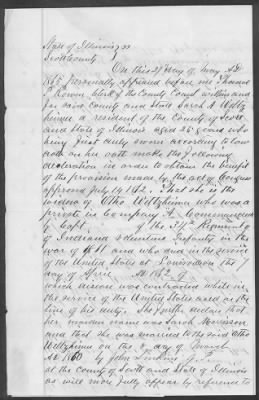 State of Illinois } ss
Scott County
On this 27 day of May A.D.
1865 personally appeared before me Thomas
Clerk of the County Court within and
for said County and State Sarah A.
a resident of the County of Scott
and State of Illinois aged 25 years who
being first duly sworn according to law
doth on her oath make the following
declaration in order to obtain the benefit
of the provision made by the act of Congress
approved July 14 1862. That she is the
widow of Otho who was a
private in Company A Commanded
by Capt. of the Regiment
of Indiana Infantry in the
war of 1861 and who died in the service
of the United States at Louisville on the
day of April AD 1862 of
which disease was contracted while in
the service of the United States and in the
line of his duty. She further declares that
her maiden name was Sarah Morrisson
and that she was married to the said Otho
on the day of March
AD 1860 by John
at the County of Scott and State of Illinois
as will more fully appear by reference to